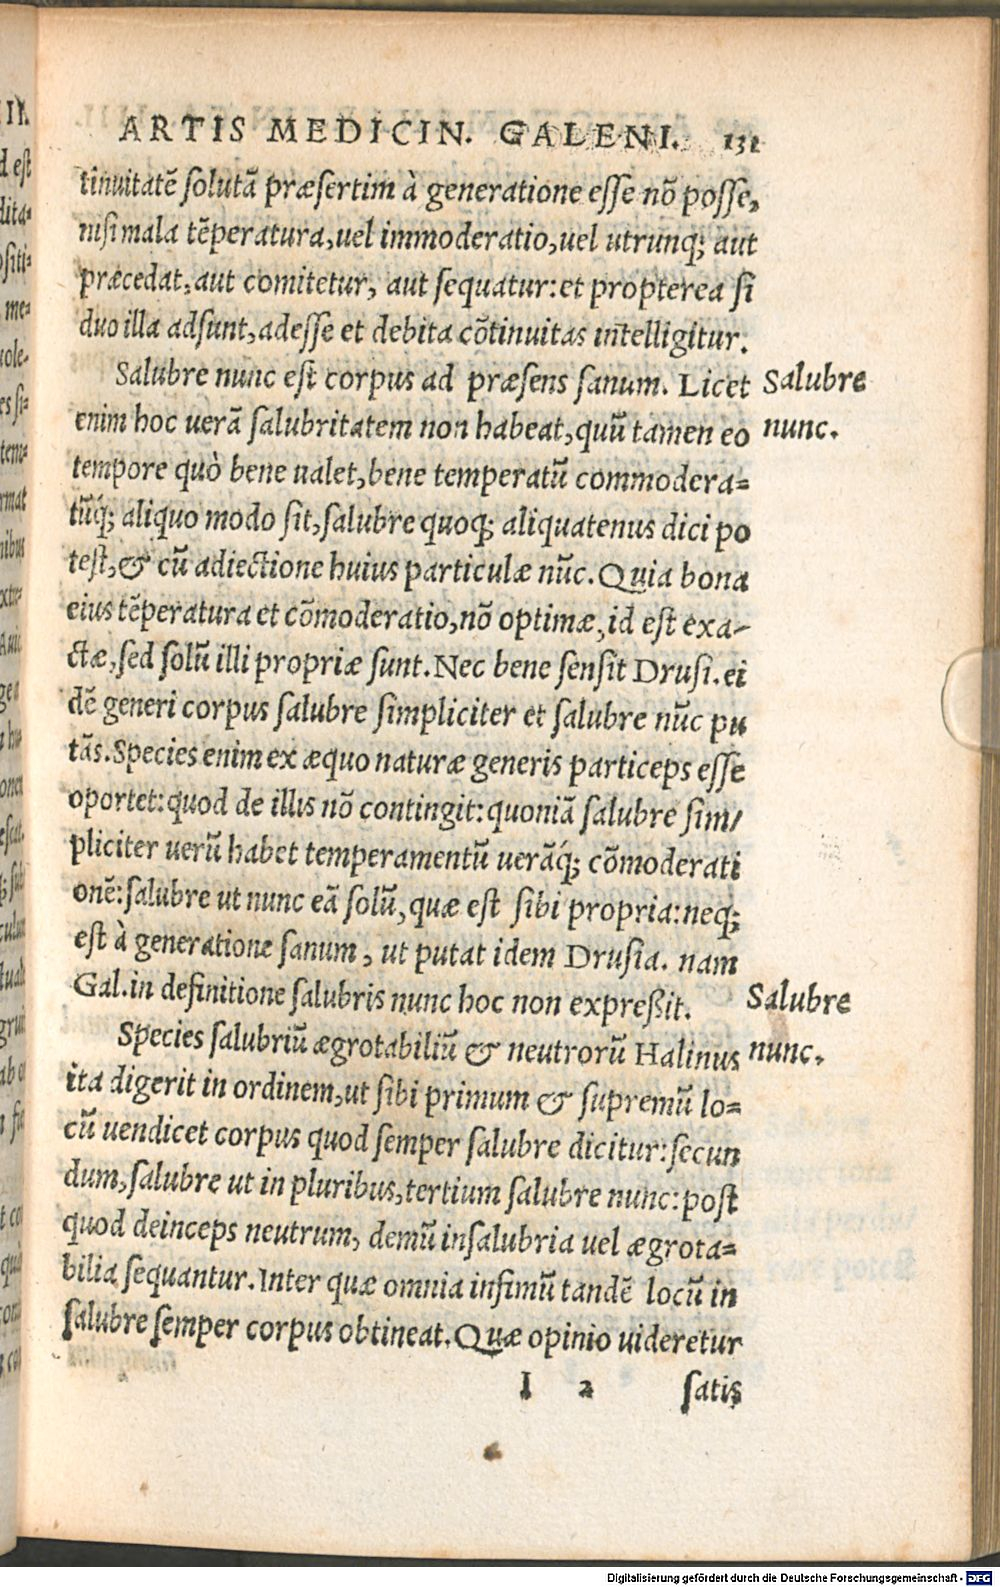 ARTIS MEDICIN. GALENI. 131
tinuitatē solutā præsertim à generatione esse nō posse,
nisi mala tēperatura, uel immoderatio, uel utrunq; aut
præcedat, aut comitetur, aut sequatur: et propterea si
duo illa adsunt, adesse et debita cōtinuitas intelligitur.
Salubre nunc est corpus ad præsens sanum. Licet
Salubre
enim hoc uerā salubritatem non habeat, quū tamen eo
nunc.
tempore quò bene ualet, bene temperatū commodera=
tūq́; aliquo modo sit, salubre quoq; aliquatenus dici po
test, & cū adiectione huius particulæ nūc. Quia bona
eius tēperatura et cōmoderatio, nō optimæ, id est exa-
ctæ, sed solū illi propriæ sunt. Nec bene sensit Drusi. ei
dē generi corpus salubre simpliciter et salubre nūc pu
tās. Species enim ex æquo naturæ generis particeps esse
oportet: quod de illis nō contingit: quoniā salubre sim/
pliciter uerū habet temperamentū uerāq́; cōmoderati
onē: salubre ut nunc eā solū, quæ est sibi propria: neq;
est à generatione sanum, ut putat idem Drusia. nam
Gal. in definitione salubris nunc hoc non expreßit.
Salubre
Species salubriū ægrotabiliū & neutrorū Halinus
nunc.
ita digerit in ordinem, ut sibi primum & supremū lo=
cū uendicet corpus quod semper salubre dicitur: secun
dum, salubre ut in pluribus, tertium salubre nunc: post
quod deinceps neutrum, demū insalubria uel ægrota=
bilia sequantur. Inter quæ omnia infimū tandē locū in
salubre semper corpus obtineat. Quæ opinio uideretur
I 2 satis
Digitalisierung gefördert durch die Deutsche Forschungsgemeinschaft - DFG